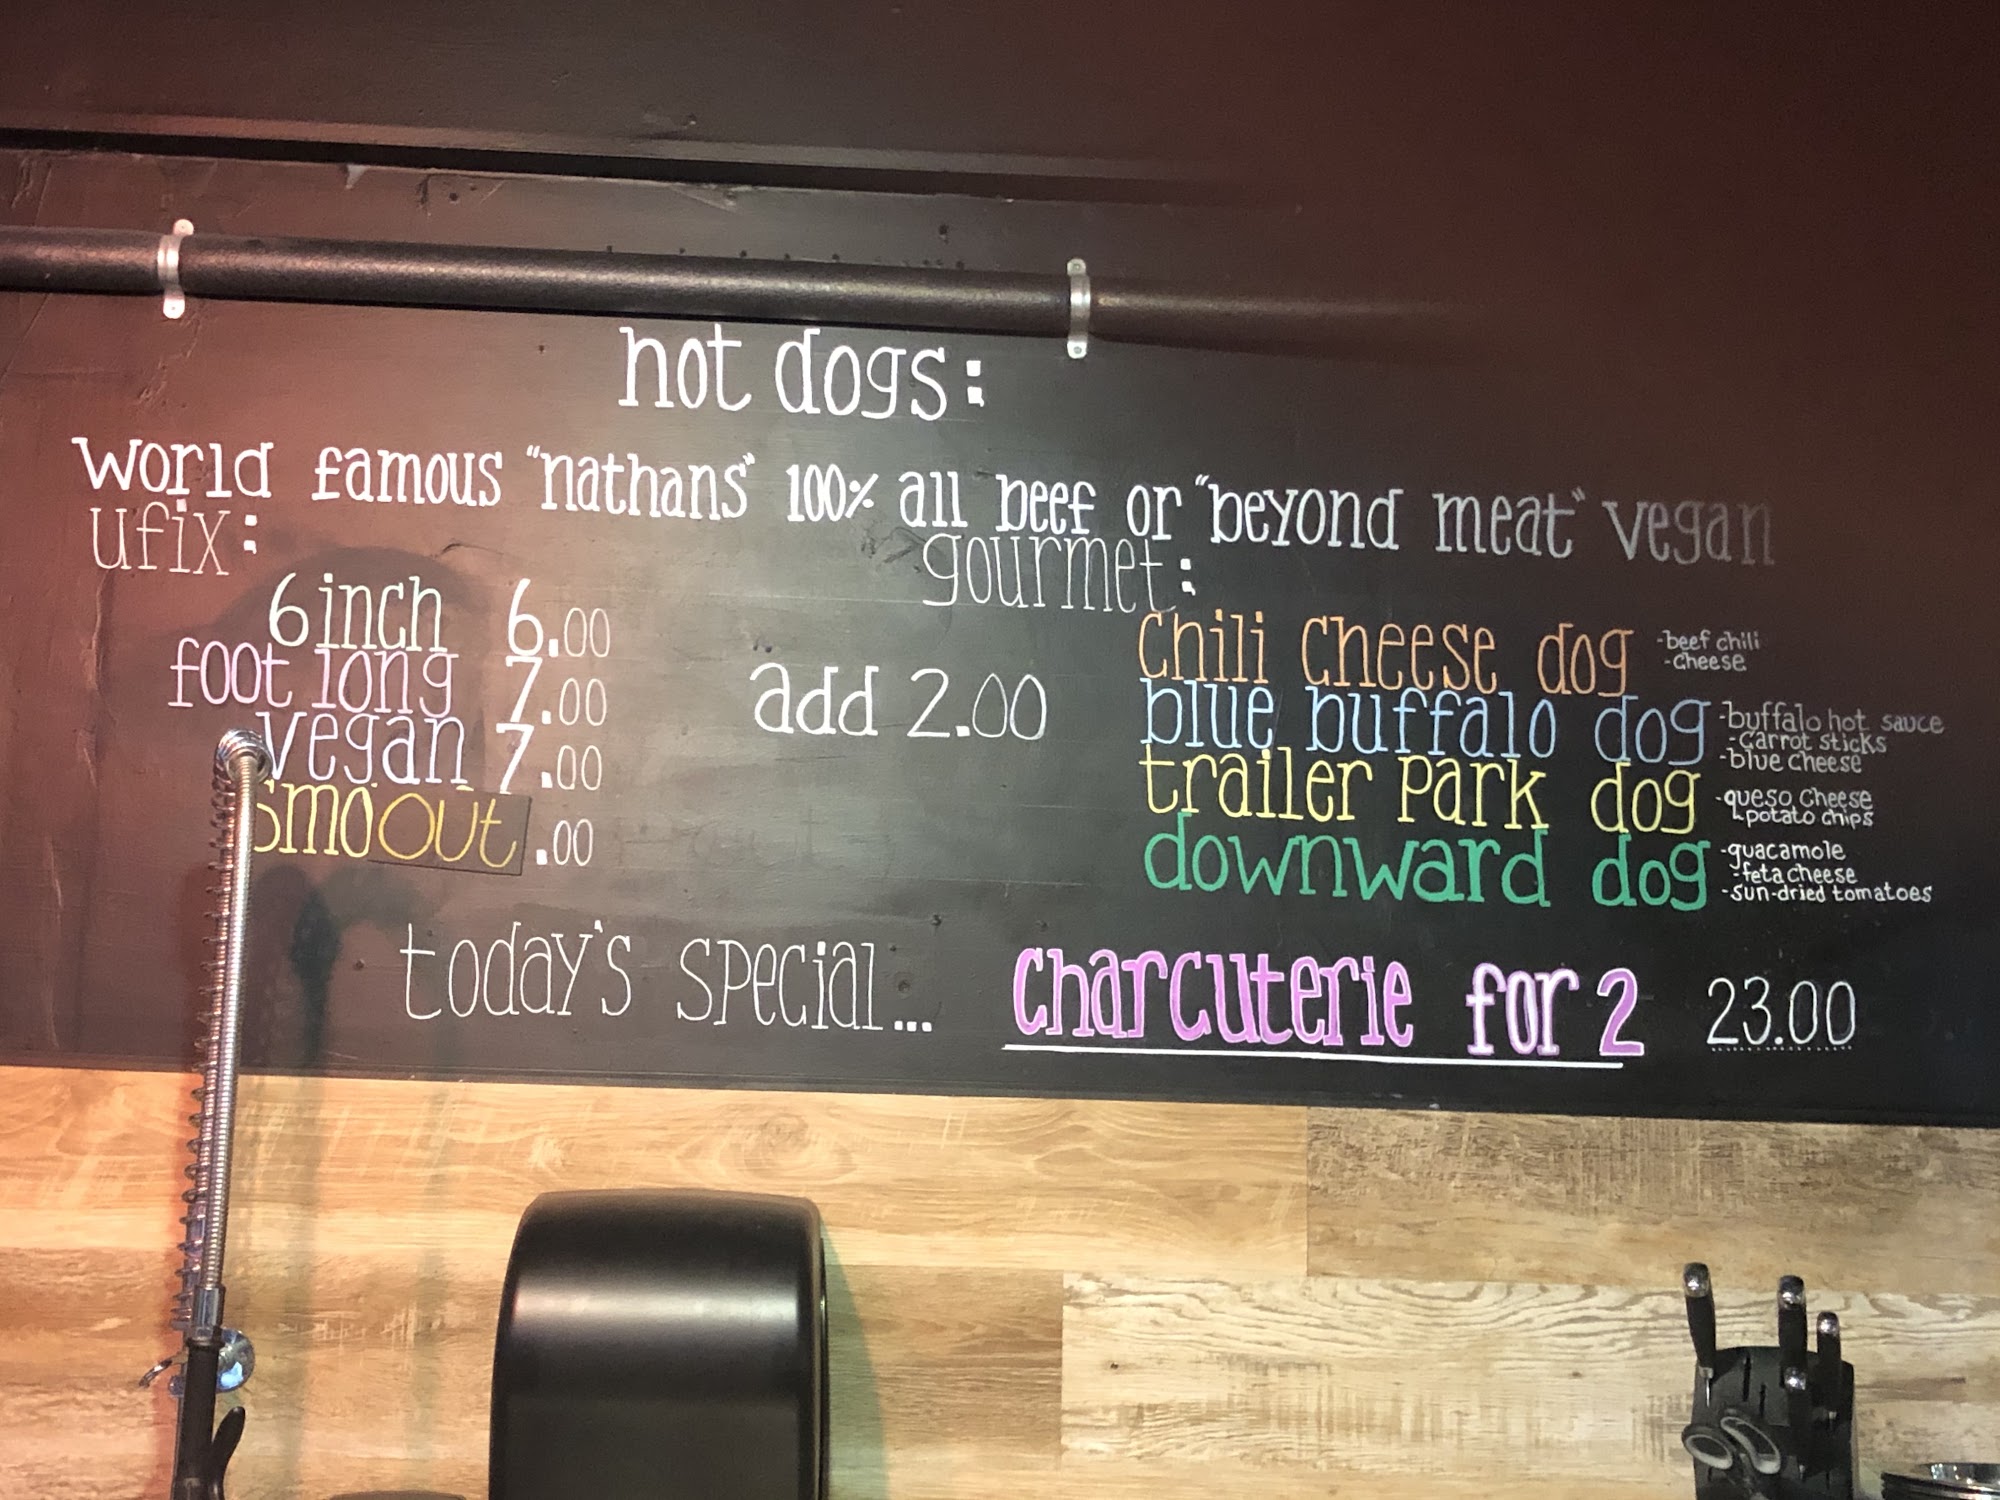 hot dogs:
world famous "nathans" 100% all beef or "beyond meat" vegan
ufix:
6 inch 6.00
foot long 7.00
vegan 7.00
smo out .00
gourmet:
add 2.00
chili cheese dog
-beef chili
-cheese
blue buffalo dog
-buffalo hot sauce
-carrot sticks
-blue cheese
trailer park dog
-queso cheese
-potato chips
downward dog
-guacamole
-feta cheese
-sun-dried tomatoes
today's special... charcuterie for 2 23.00